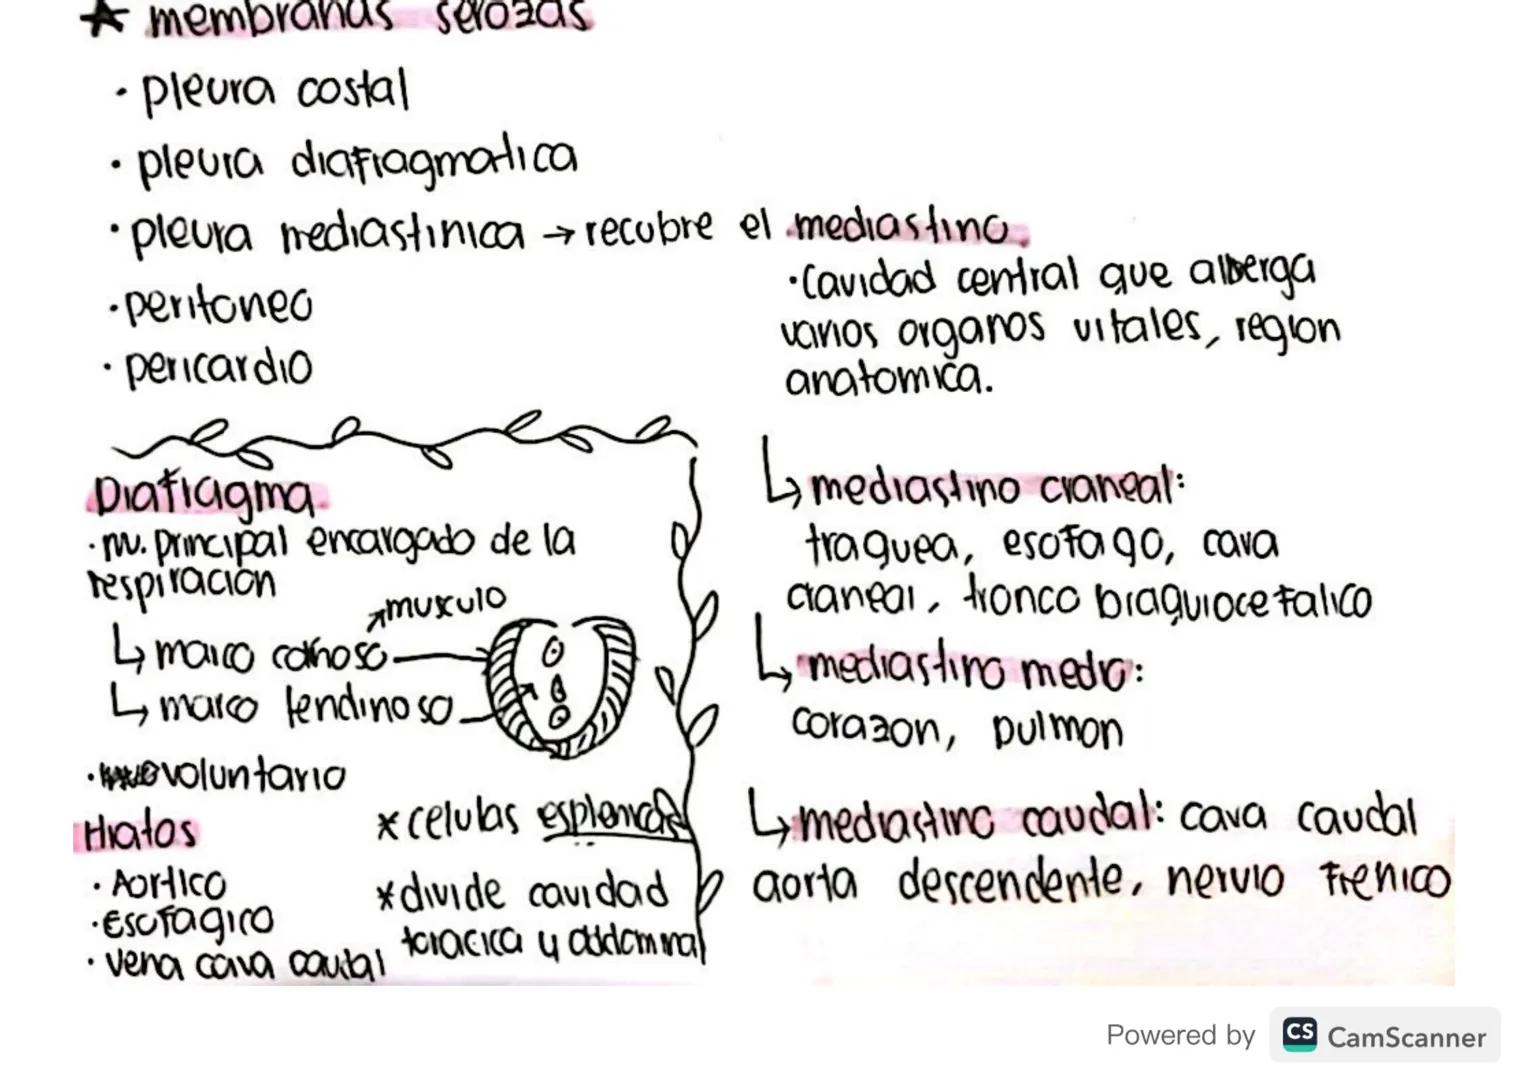 ★ membranas serozas
· pleura costal
· pleura diafragmatica
· pleura mediastinica → recubre el mediastino
· peritoneo
· pericardio
· Cavidad central que alberga
varios organos vitales, region
anatomica.
↳ mediastino craneal:
traquea, esofago, cava
craneal, tronco braquiocefalico
↳ mediastino medio:
corazon, pulmon
↳ mediastino caudal: cava caudal
aorta descendente, nervio frenico
Diafragma
· m. principal encargado de la
respiracion
↗musculo
↳ marco carnoso
↳ marco tendinoso
· voluntario
Hiatos
· Aortico
· Esofagico
· vena cava caudal
* celulas
* divide cavidad
toracica y abdominal
Powered by CS CamScanner